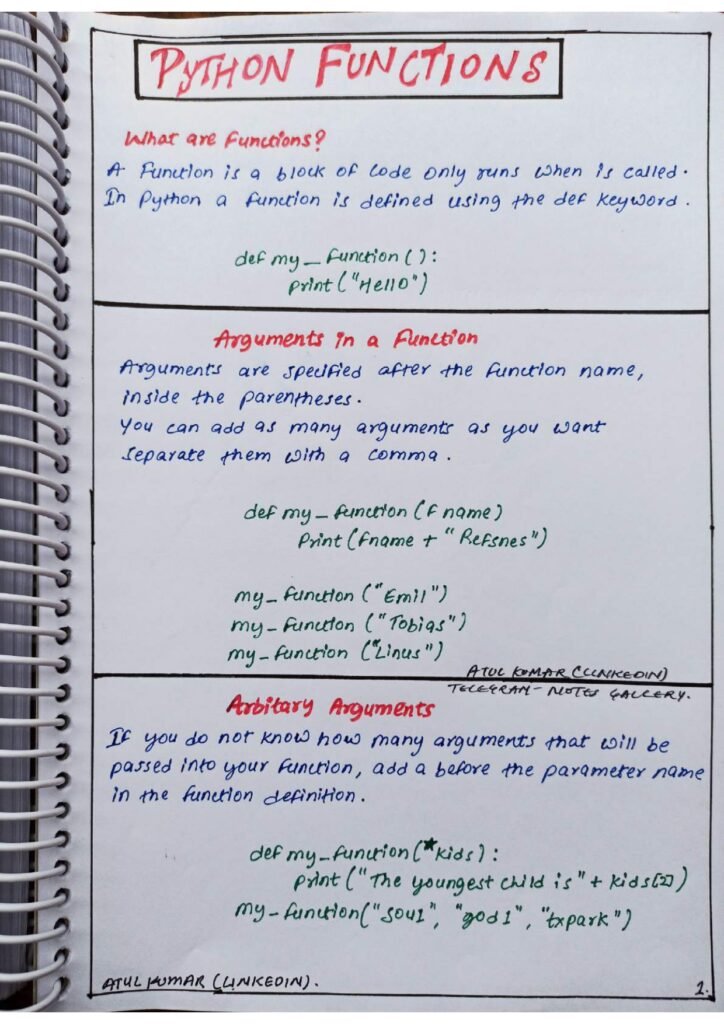 PYTHON FUNCTIONS
What are Functions?
A Function is a block of Code only runs when is called.
In Python a function is defined using the def keyword.
def my_function():
print("Hello")
Arguments in a Function
Arguments are specified after the function name,
inside the parentheses.
You can add as many arguments as you want
separate them with a comma.
def my_function(fname)
Print(fname + "Refsnes")
my_function("Emil")
my_function("Tobias")
my_function("Linus")
ATUL KUMAR (LINKEDIN)
TELEGRAM - NOTES GALLERY.
Arbitary Arguments
If you do not know how many arguments that will be
passed into your function, add a before the parameter name
in the function definition.
def my_function(*kids):
print("The youngest child is" + kids[2])
my_function("soul", "god1", "txpark")
ATUL KUMAR (LINKEDIN).
1.